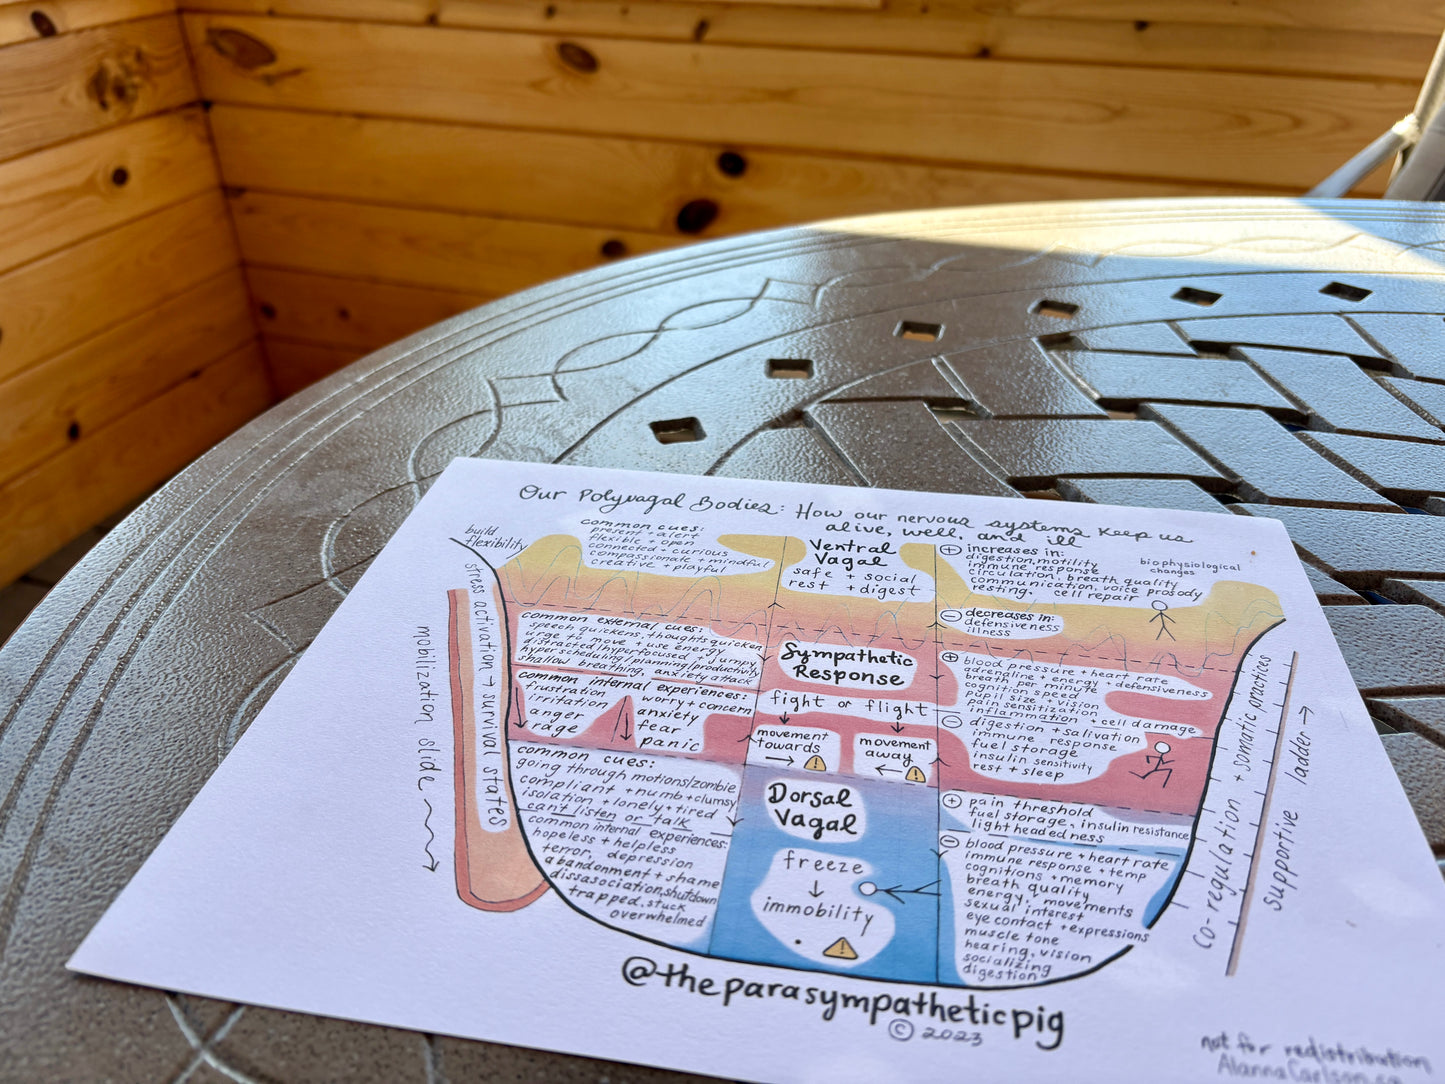 Our Polyvagal Bodies: How our nervous systems keep us
alive, well, and ill
build
flexibility
common cues:
present + alert
flexible + open
connected + curious
compassionate + mindful
creative + playful
Ventral
Vagal
safe + social
rest + digest
+ increases in:
digestion, motility
immune response
circulation, breath quality
communication, voice prosody
resting. cell repair
biophysiological
changes
- decreases in:
defensiveness
illness
common external cues:
speech quickens, thoughts quicken
urge to move + use energy
distracted/hyperfocused, jumpy
hyper scheduling/planning/productivity
shallow breathing, anxiety attack
common internal experiences:
frustration
irritation
anger
rage
worry + concern
anxiety
fear
panic
Sympathetic
Response
fight or flight
movement
towards
movement
away
+ blood pressure + heart rate
adrenaline + energy + defensiveness
breath per minute
cognition speed
pupil size + vision
pain sensitization
inflammation + cell damage
- digestion + salivation
immune response
fuel storage
insulin sensitivity
rest + sleep
common cues:
going through motions/zombie
compliant + numb + clumsy
isolation + lonely + tired
can't listen or talk
common internal experiences:
hopeless + helpless
terror, depression
abandonment + shame
dissasociation, shutdown
trapped, stuck
overwhelmed
Dorsal
Vagal
freeze
immobility
+ pain threshold
fuel storage, insulin resistance
lightheadedness
- blood pressure + heart rate
immune response + temp
cognitions + memory
breath quality
energy, movements
sexual interest
eye contact + expressions
muscle tone
hearing, vision
socializing
digestion
stress activation → survival states
mobilization slide
co-regulation + somatic practices
supportive ladder
@theparasympatheticpig
© 2023
not for redistribution
AlannaCarlson.ca